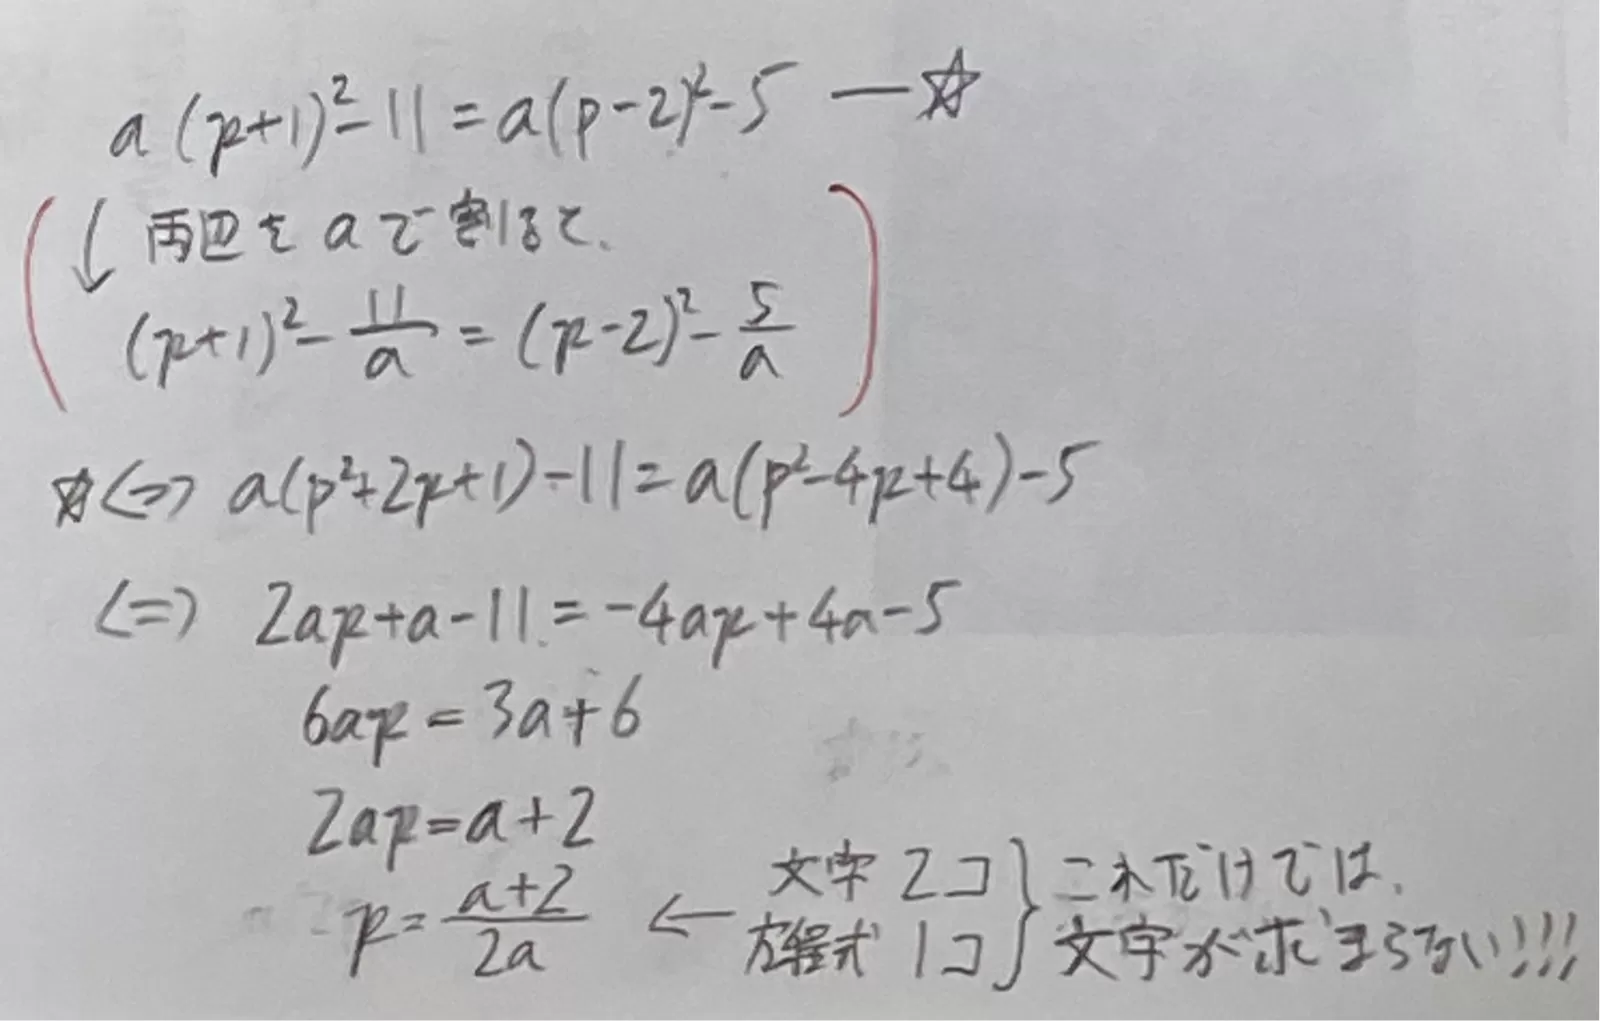 a(p+1)²-11=a(p-2)²-5 ―☆
↓両辺をaで割ると、
(p+1)²-11/a=(p-2)²-5/a
☆<=> a(p²+2p+1)-11=a(p²-4p+4)-5
<=> 2ap+a-11=-4ap+4a-5
6ap=3a+6
2ap=a+2
p=(a+2)/2a ← 文字2コ
方程式1コ
これだけでは、
文字が求まらない!!!